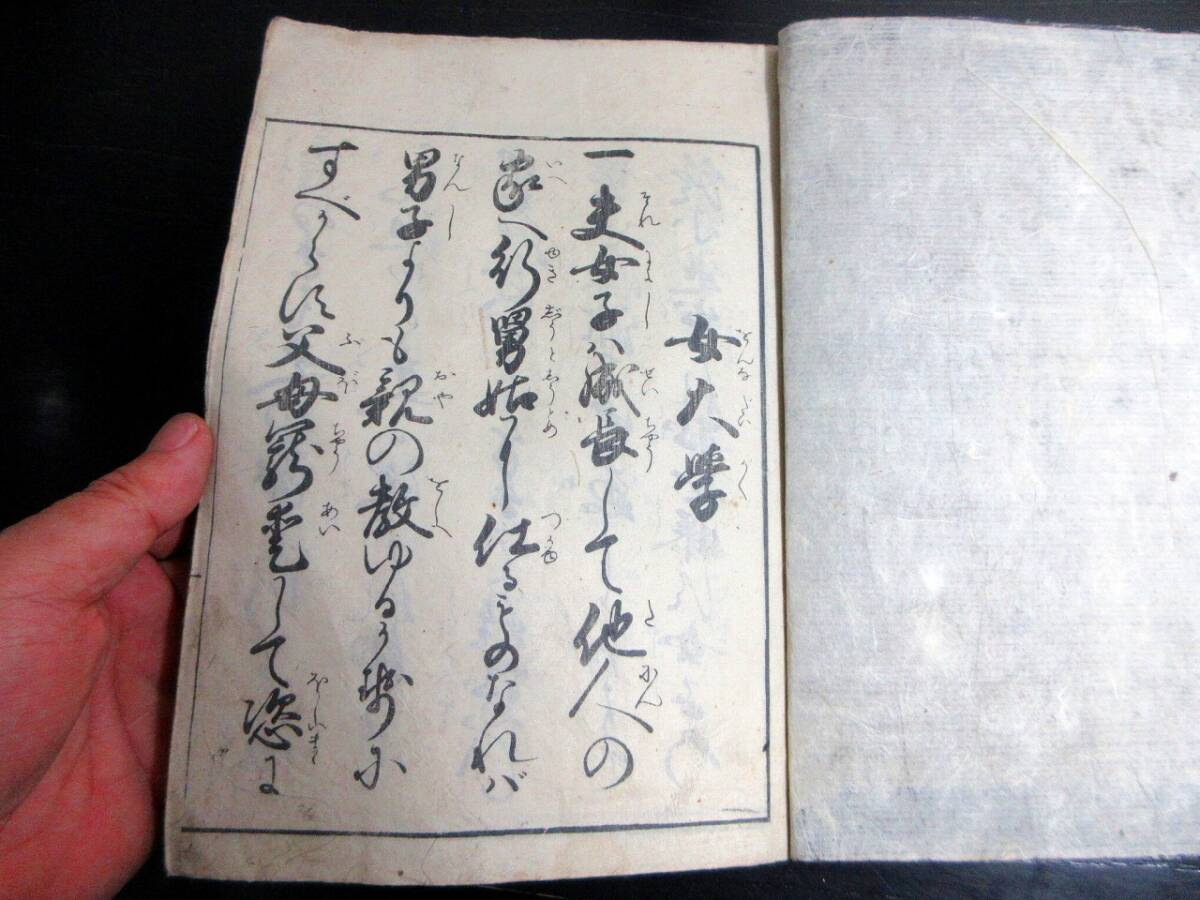 女大学
一夫女子ハ成長して他人の
家へ行舅姑に仕るものなれバ
男子よりも親の教ゆるかせに
すべからず父母寵愛して恣に